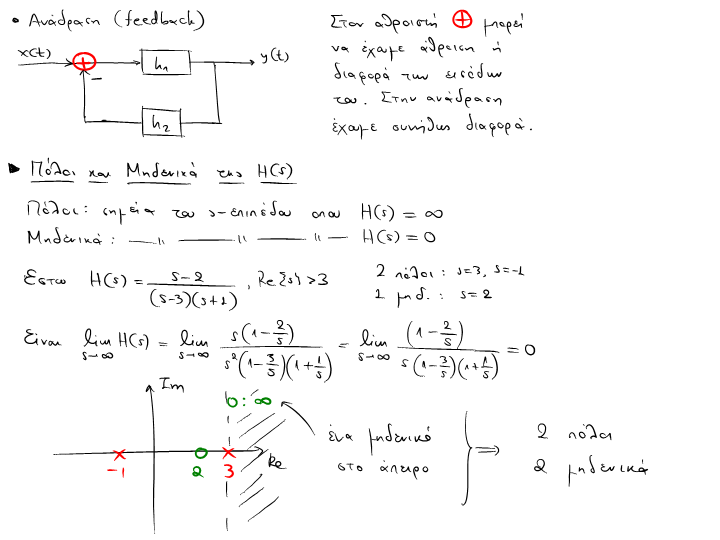 • Ανάδραση (feedback)
x(t) + − h₁ y(t)
h₂
Στον αθροιστή ⊕ μπορεί
να έχουμε άθροιση ή
διαφορά των εισόδων
του. Στην ανάδραση
έχουμε συνήθως διαφορά.
▶ Πόλοι και Μηδενικά της H(s)
Πόλοι: σημεία του s-επιπέδου όπου H(s) = ∞
Μηδενικά: —〃— —〃— —〃— H(s) = 0
Έστω H(s) = (s-2)/((s-3)(s+1)), Re{s}>3
2 πόλοι: s=3, s=-1
1 μηδ.: s=2
Είναι lim_{s→∞} H(s) = lim_{s→∞} s(1-2/s)/(s²(1-3/s)(1+1/s)) = lim_{s→∞} (1-2/s)/(s(1-3/s)(1+1/s)) = 0
Im
o: ∞
-1 2 3 Re
ένα μηδενικό
στο άπειρο
⇒ 2 πόλοι
2 μηδενικά